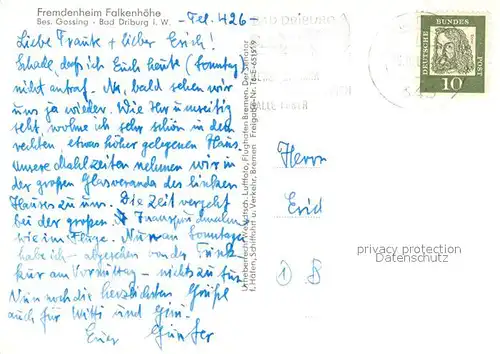 Fremdenheim Falkenhöhe
Bes. Gossing - Bad Driburg i. W. - Tel. 426
Liebe Traute + lieber Erich!
Schade, daß ich Euch heute (Sonntag)
nicht antraf. Na, bald sehen wir
uns ja wieder. Wie Ihr umseitig
seht, wohne ich sehr schön in dem
rechten, etwas höher gelegenen Haus.
Unsere Mahlzeiten nehmen wir in
der großen Glasveranda des linken
Hauses zu uns. Die Zeit vergeht
bei der großen
wie im Fluge. Nur an Sonntagen
habe ich - abgesehen von der Trink-
kur am Vormittag - nichts zu tun.
Nun noch die herzlichsten Grüße
auch für Mutti und
Euer Günter
Urheberrecht u. Luftfoto, Flughafen Bremen, Der Senator
f. Häfen, Schiffahrt u. Verkehr, Bremen Freigabe-Nr.
BAD DRIBURG
DEUTSCHE BUNDES POST
10
Herrn
privacy protection
Datenschutz